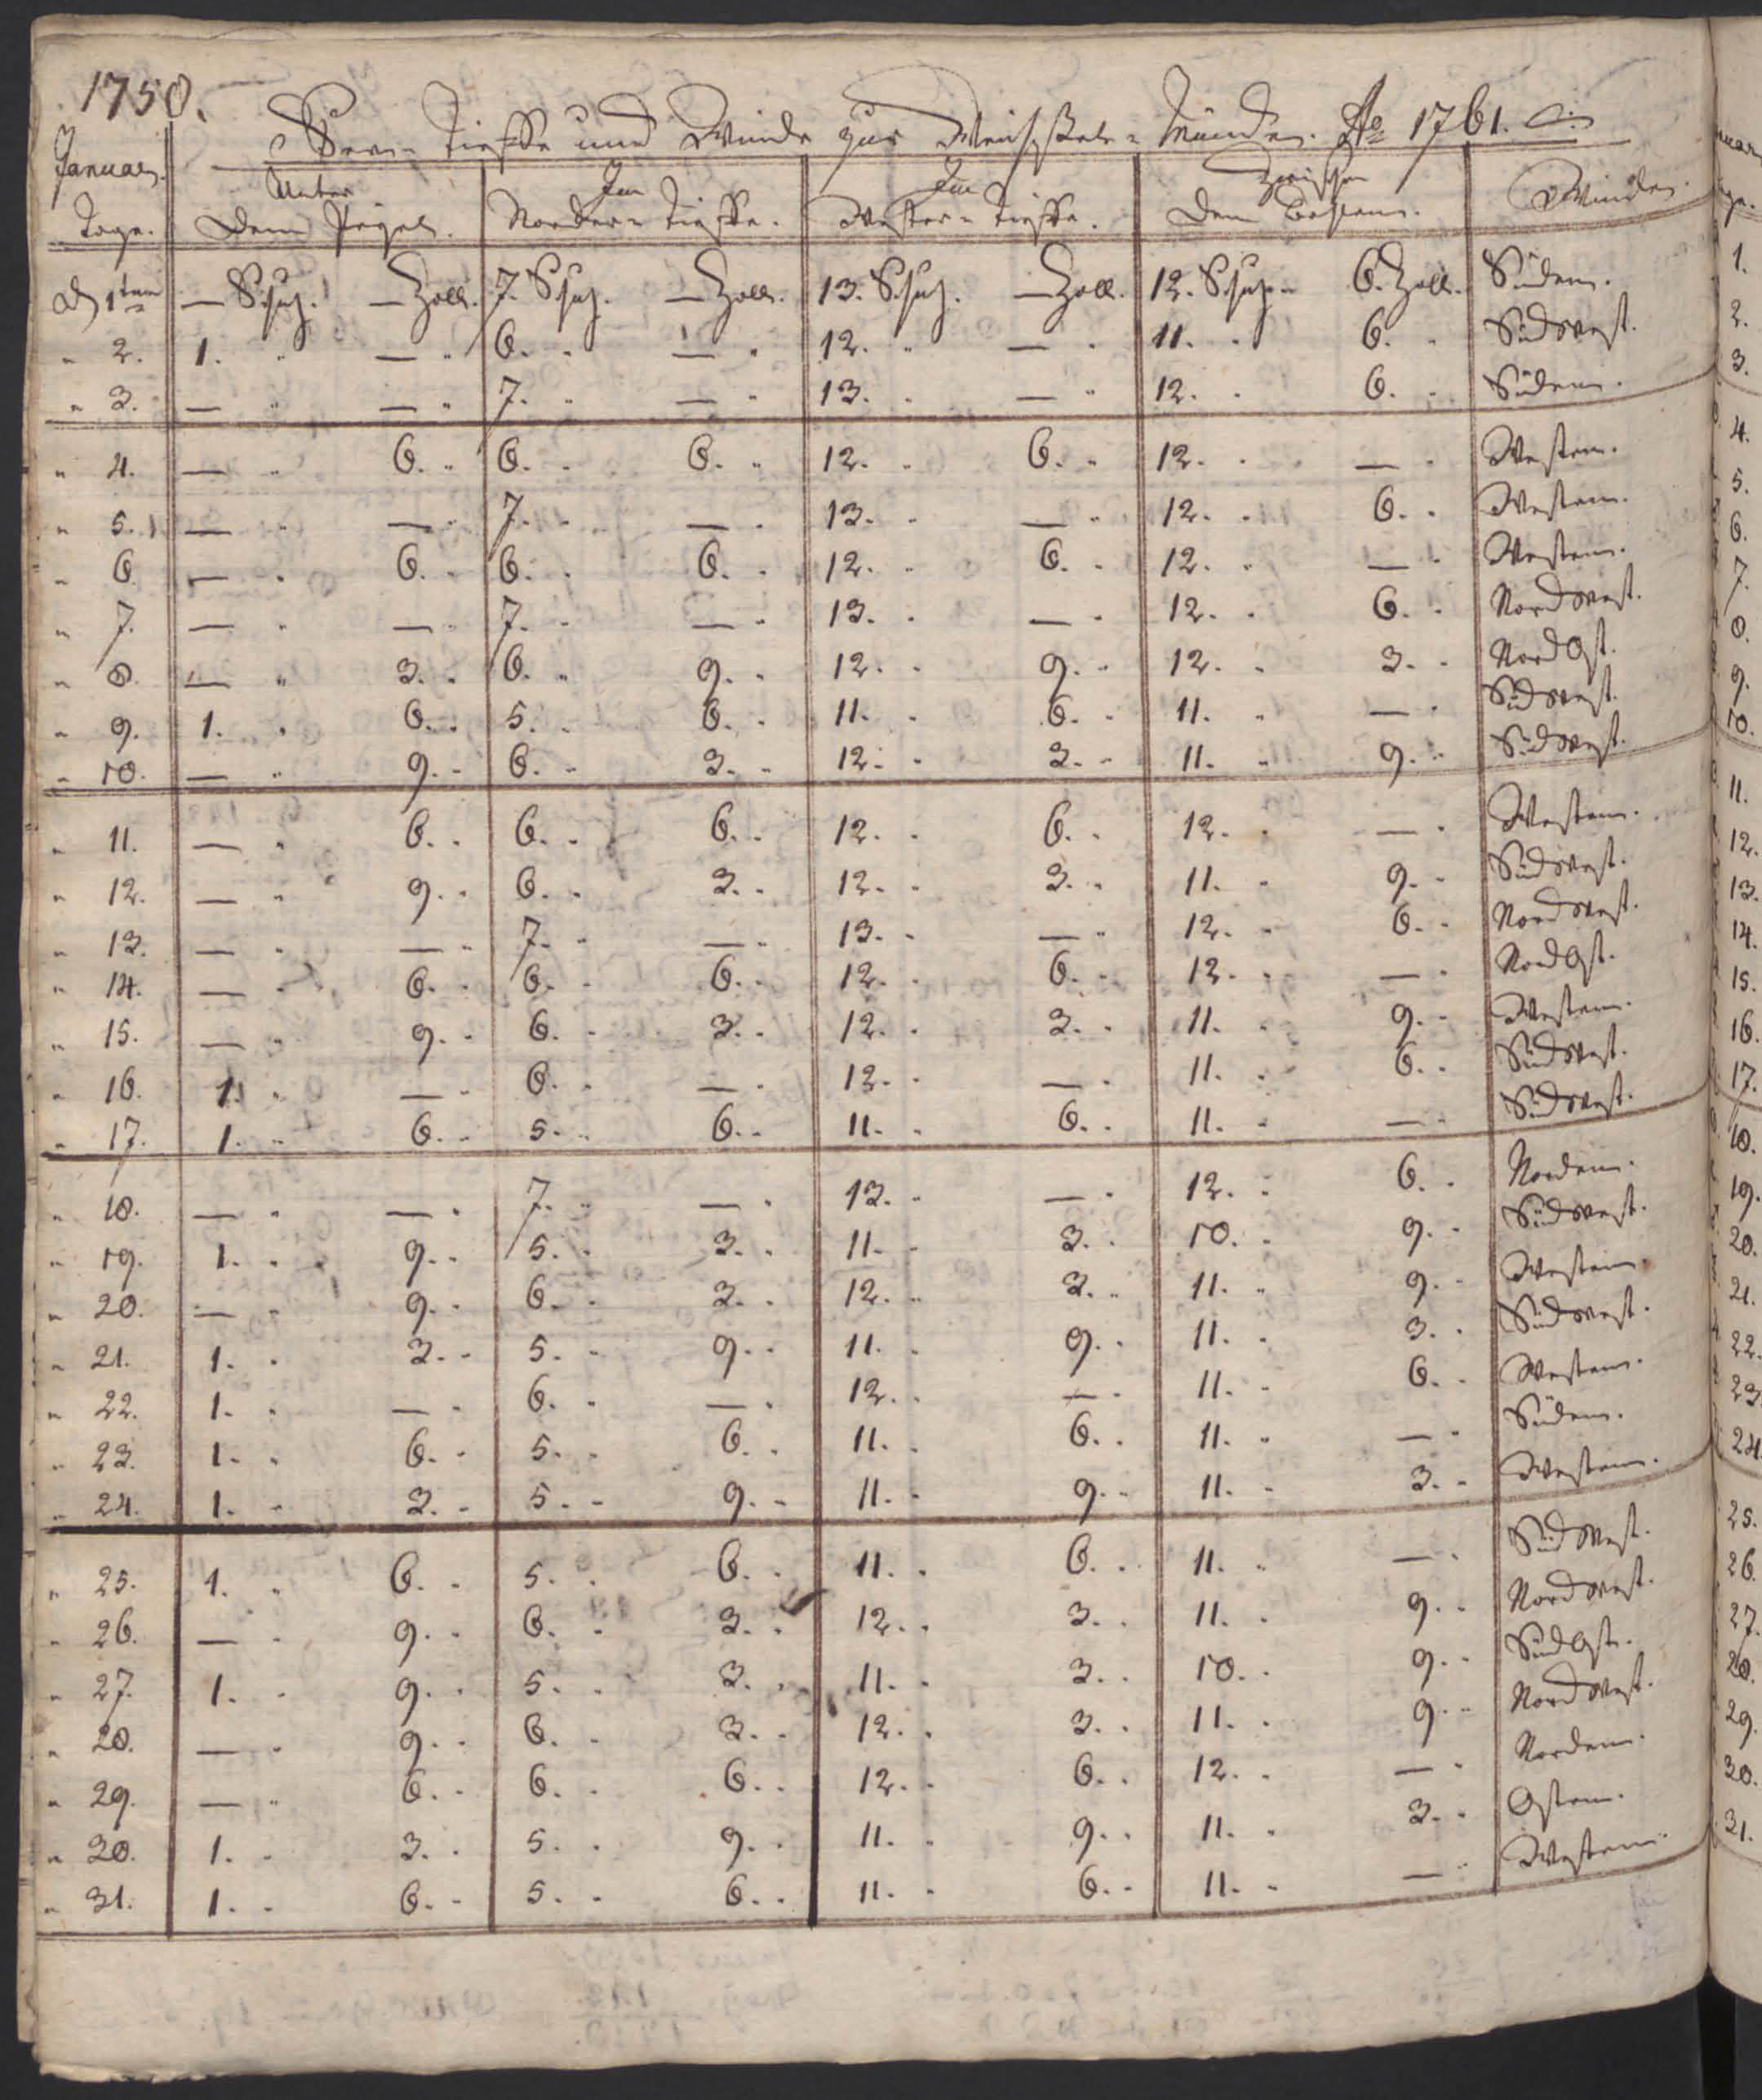 1758.
Seen-Tieffe und Winde zur Weichsel-Münde. Ao 1761.
Januar. Unter Im Im Zwischen
Tage. Dem Pegel. Norder-Tieffe. Wester-Tieffe. Den Böhlen. Winde.
D 1ten — Schuh. — Zoll. 7. Schuh. — Zoll. 13. Schuh. — Zoll. 12. Schuh. 6. Zoll. Süden.
" 2. 1. " — " 6. " — " 12. " — " 11. " 6. " Südwest.
" 3. — " — " 7. " — " 13. " — " 12. " 6. " Süden.
" 4. — " 6. " 6. " 6. " 12. " 6. " 12. " — " Westen.
" 5. — " — " 7. " — " 13. " — " 12. " 6. " Westen.
" 6. — " 6. " 6. " 6. " 12. " 6. " 12. " — " Westen.
" 7. — " — " 7. " — " 13. " — " 12. " 6. " Nordwest.
" 8. — " 3. " 6. " 9. " 12. " 9. " 12. " 3. " NordOst.
" 9. 1. " 6. " 5. " 6. " 11. " 6. " 11. " — " Südwest.
" 10. — " 9. " 6. " 3. " 12. " 3. " 11. " 9. " Südwest.
" 11. — " 6. " 6. " 6. " 12. " 6. " 12. " — " Westen.
" 12. — " 9. " 6. " 3. " 12. " 3. " 11. " 9. " Südwest.
" 13. — " — " 7. " — " 13. " — " 12. " 6. " Nordwest.
" 14. — " 6. " 6. " 6. " 12. " 6. " 12. " — " NordOst.
" 15. — " 9. " 6. " 3. " 12. " 3. " 11. " 9. " Westen.
" 16. 1. " — " 6. " — " 12. " — " 11. " 6. " Südwest.
" 17. 1. " 6. " 5. " 6. " 11. " 6. " 11. " — " Südwest.
" 18. — " — " 7. " — " 13. " — " 12. " 6. " Norden.
" 19. 1. " 9. " 5. " 3. " 11. " 3. " 10. " 9. " Südwest.
" 20. — " 9. " 6. " 3. " 12. " 3. " 11. " 9. " Westen.
" 21. 1. " 3. " 5. " 9. " 11. " 9. " 11. " 3. " Südwest.
" 22. 1. " — " 6. " — " 12. " — " 11. " 6. " Westen.
" 23. 1. " 6. " 5. " 6. " 11. " 6. " 11. " — " Süden.
" 24. 1. " 3. " 5. " 9. " 11. " 9. " 11. " 3. " Westen.
" 25. 1. " 6. " 5. " 6. " 11. " 6. " 11. " — " Südwest.
" 26. — " 9. " 6. " 3. " 12. " 3. " 11. " 9. " Nordwest.
" 27. 1. " 9. " 5. " 3. " 11. " 3. " 10. " 9. " SüdOst.
" 28. — " 9. " 6. " 3. " 12. " 3. " 11. " 9. " Nordwest.
" 29. — " 6. " 6. " 6. " 12. " 6. " 12. " — " Norden.
" 30. 1. " 3. " 5. " 9. " 11. " 9. " 11. " 3. " Osten.
" 31. 1. " 6. " 5. " 6. " 11. " 6. " 11. " — " Westen.
1.
2.
3.
4.
5.
6.
7.
8.
9.
10.
11.
12.
13.
14.
15.
16.
17.
18.
19.
20.
21.
22.
23.
24.
25.
26.
27.
28.
29.
30.
31.